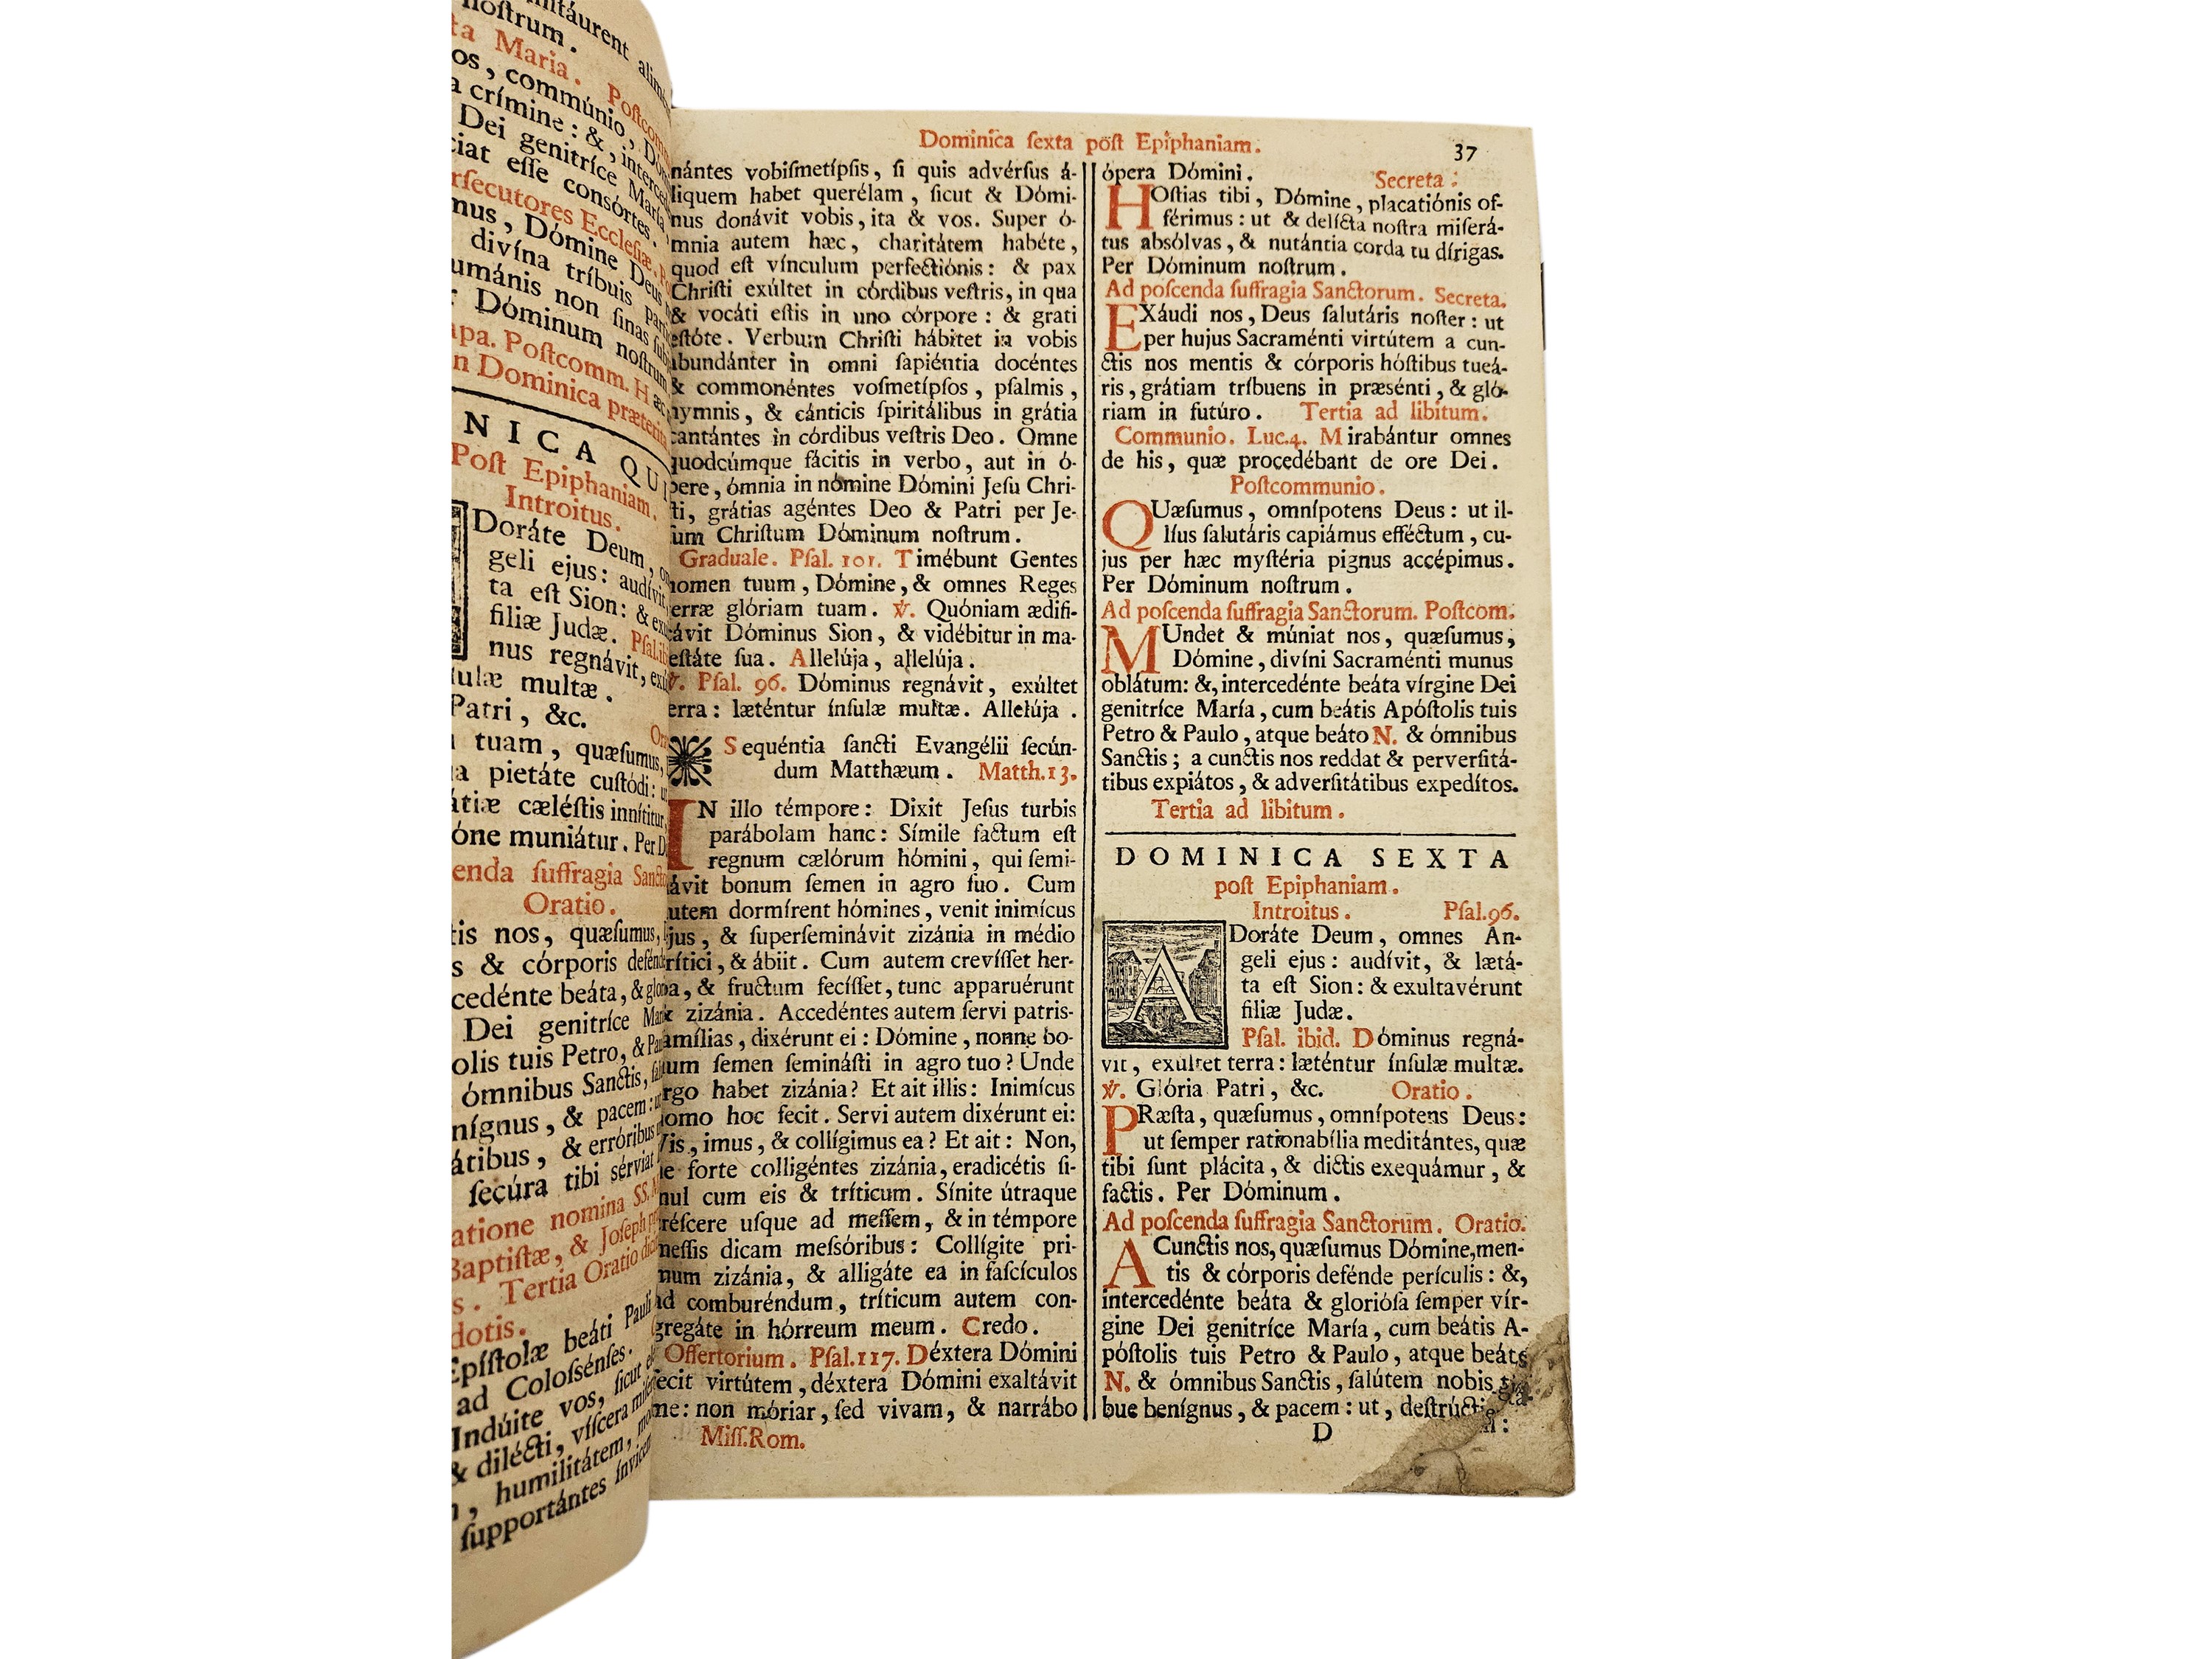 nostrum.
Maria.
os, commúnio,
crímine: &, interced
Dei genitríce María,
esse consórtes.
Ecclesiæ.
mus, Dómine Deus
divína tríbuis
umánis non sinas
Dóminum nostrum
Postcomm. Hæc
n Dominica præterita
NICA QUI
Post Epiphaniam.
Introitus.
Doráte Deum,
geli ejus: audívit
ta est Sion: &
filiæ Judæ.
nus regnávit,
multæ.
Patri, &c.
tuam, quæsumus,
pietáte custódi:
cæléstis innítitur
muniátur. Per
suffragia
Oratio.
tis nos, quæsumus,
s & córporis
cedénte beáta, &
Dei genitríce
olis tuis Petro, &
ómnibus Sanctis,
nígnus, & pacem:
átibus, & erróribus
secúra tibi sérviat
nomina SS.
Baptistæ, & Joseph
s. Tertia Oratio
dotis.
Epístolæ beáti Pauli
ad Colossénses.
Indúite vos, sicut
& dilécti, víscera
humilitátem,
supportántes ínvicem
Dominica sexta pòst Epiphaniam. 37
nántes vobismetípsis, si quis advérsus á-
liquem habet querélam, sicut & Dómi-
nus donávit vobis, ita & vos. Super ó-
mnia autem hæc, charitátem habéte,
quod est vínculum perfectiónis: & pax
Christi exúltet in córdibus vestris, in qua
& vocáti estis in uno córpore: & grati
estóte. Verbum Christi hábitet in vobis
abundánter in omni sapiéntia docéntes
& commonéntes vosmetípsos, psalmis,
hymnis, & cánticis spiritálibus in grátia
cantántes in córdibus vestris Deo. Omne
quodcúmque fácitis in verbo, aut in ó-
pere, ómnia in nómine Dómini Jesu Chri-
sti, grátias agéntes Deo & Patri per Je-
sum Christum Dóminum nostrum.
Graduale. Psal. 101. Timébunt Gentes
nomen tuum, Dómine, & omnes Reges
terræ glóriam tuam. ℣. Quóniam ædifi-
cávit Dóminus Sion, & vidébitur in ma-
estáte sua. Allelúja, allelúja.
℣. Psal. 96. Dóminus regnávit, exúltet
terra: læténtur ínsulæ multæ. Allelúja.
Sequéntia sancti Evangélii secún-
dum Matthæum. Matth.13.
IN illo témpore: Dixit Jesus turbis
parábolam hanc: Símile factum est
regnum cælórum hómini, qui semi-
návit bonum semen in agro suo. Cum
autem dormírent hómines, venit inimícus
ejus, & superseminávit zizánia in médio
trítici, & ábiit. Cum autem crevísset her-
ba, & fructum fecísset, tunc apparuérunt
& zizánia. Accedéntes autem servi patris-
famílias, dixérunt ei: Dómine, nonne bo-
num semen seminásti in agro tuo? Unde
ergo habet zizánia? Et ait illis: Inimícus
homo hoc fecit. Servi autem dixérunt ei:
Vis, imus, & collígimus ea? Et ait: Non,
ne forte colligéntes zizánia, eradicétis si-
mul cum eis & tríticum. Sínite útraque
créscere usque ad messem, & in témpore
messis dicam messóribus: Collígite pri-
mum zizánia, & alligáte ea in fascículos
ad comburéndum, tríticum autem con-
gregáte in hórreum meum. Credo.
Offertorium. Psal.117. Déxtera Dómini
fecit virtútem, déxtera Dómini exaltávit
me: non móriar, sed vivam, & narrábo
Miss.Rom.
ópera Dómini. Secreta:
HOstias tibi, Dómine, placatiónis of-
férimus: ut & delícta nostra miserá-
tus absólvas, & nutántia corda tu dírigas.
Per Dóminum nostrum.
Ad poscenda suffragia Sanctorum. Secreta.
EXáudi nos, Deus salutáris noster: ut
per hujus Sacraménti virtútem a cun-
ctis nos mentis & córporis hóstibus tueá-
ris, grátiam tríbuens in præsénti, & gló-
riam in futúro. Tertia ad libitum.
Communio. Luc.4. Mirabántur omnes
de his, quæ procedébant de ore Dei.
Postcommunio.
QUæsumus, omnípotens Deus: ut il-
líus salutáris capiámus efféctum, cu-
jus per hæc mystéria pignus accépimus.
Per Dóminum nostrum.
Ad poscenda suffragia Sanctorum. Postcom.
MUndet & múniat nos, quæsumus,
Dómine, divíni Sacraménti munus
oblátum: &, intercedénte beáta vírgine Dei
genitríce María, cum beátis Apóstolis tuis
Petro & Paulo, atque beáto N. & ómnibus
Sanctis; a cunctis nos reddat & perversitá-
tibus expiátos, & adversitátibus expedítos.
Tertia ad libitum.
DOMINICA SEXTA
post Epiphaniam.
Introitus. Psal.96.
ADoráte Deum, omnes An-
geli ejus: audívit, & lætá-
ta est Sion: & exultavérunt
filiæ Judæ.
Psal. ibid. Dóminus regná-
vit, exultet terra: læténtur ínsulæ multæ.
℣. Glória Patri, &c. Oratio.
PRæsta, quæsumus, omnípotens Deus:
ut semper rationabília meditántes, quæ
tibi sunt plácita, & dictis exequámur, &
factis. Per Dóminum.
Ad poscenda suffragia Sanctorum. Oratio.
A Cunctis nos, quæsumus Dómine, men-
tis & córporis defénde perículis: &,
intercedénte beáta & gloriósa semper vír-
gine Dei genitríce María, cum beátis A-
póstolis tuis Petro & Paulo, atque beáto
N. & ómnibus Sanctis, salútem nobis
bue benígnus, & pacem: ut,
D